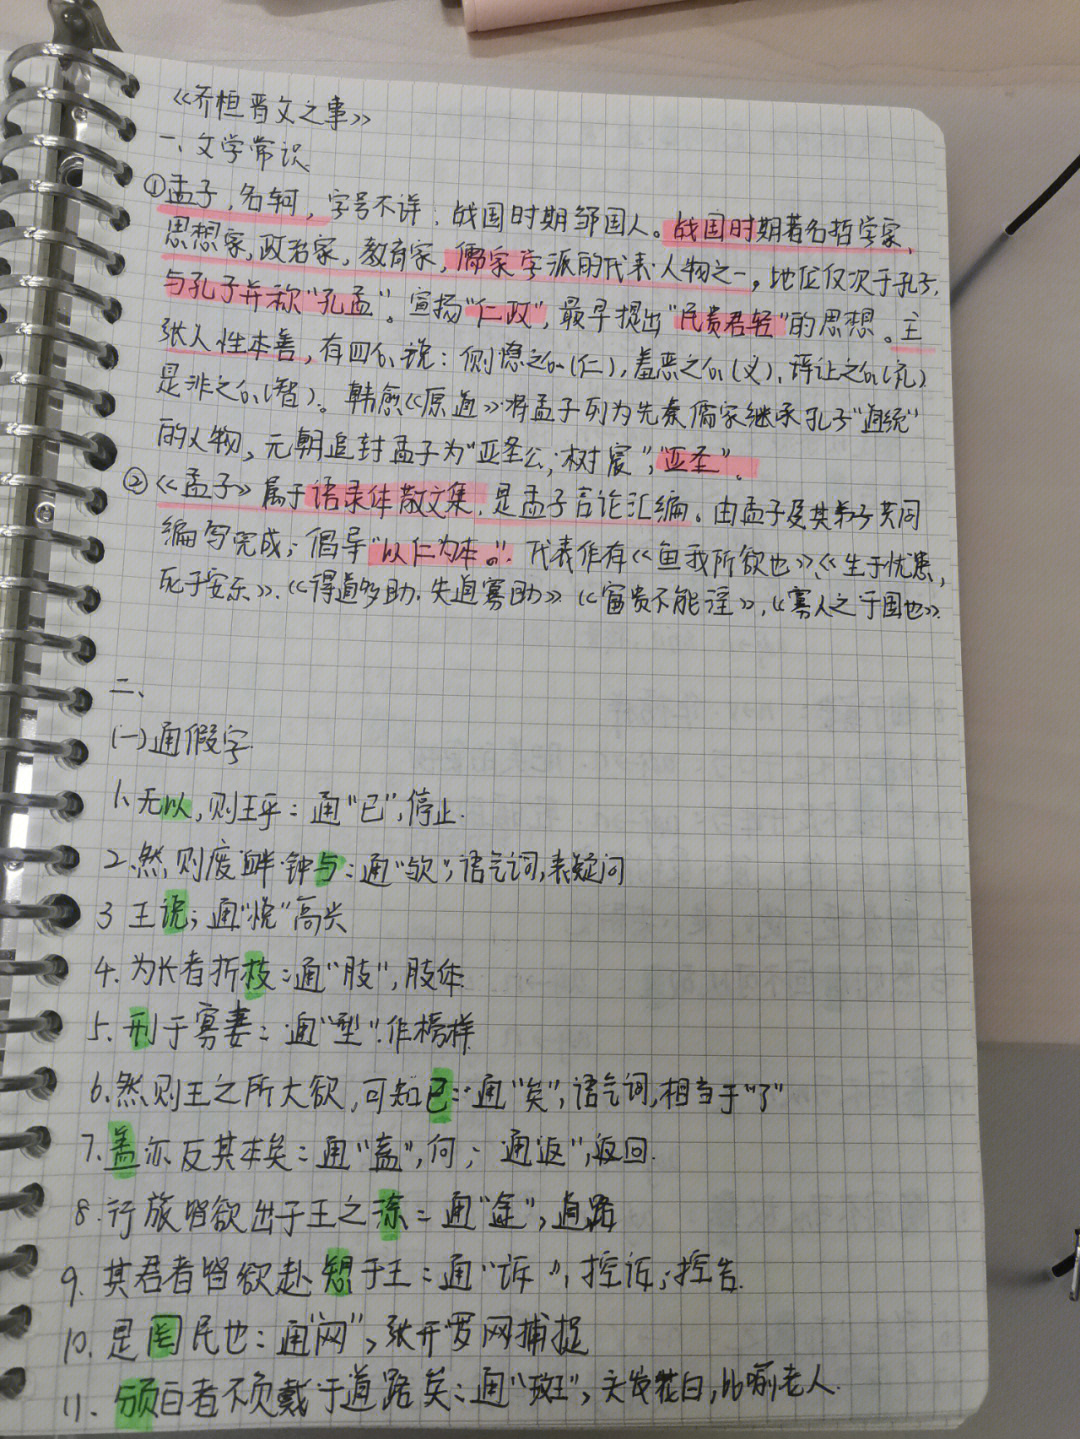 《齐桓晋文之事》
一、文学常识
①孟子,名轲,字号不详,战国时期邹国人。战国时期著名哲学家,
思想家,政治家,教育家,儒家学派的代表人物之一,地位仅次于孔子,
与孔子并称"孔孟"。宣扬"仁政",最早提出"民贵君轻"的思想。主
张人性本善,有四心说:侧隐之心(仁),羞恶之心(义),辞让之心(礼)
是非之心(智)。韩愈《原道》将孟子列为先秦儒家继承孔子"道统"
的人物,元朝追封孟子为"亚圣公,树宸","亚圣"。
②《孟子》属于语录体散文集,是孟子言论汇编。由孟子及其弟子共同
编写完成;倡导"以仁为本。"代表作有《鱼我所欲也》、《生于忧患,
死于安乐》.《得道多助.失道寡助》《富贵不能淫》,《寡人之于国也》.
二、
(一)通假字
1、无以,则王乎:通"已",停止.
2.然则废衅钟与:通"欤",语气词,表疑问
3 王说;通"悦"高兴
4.为长者折枝:通"肢",肢体
5.刑于寡妻:通"型".作榜样
6.然则王之所大欲,可知已:通"矣",语气词,相当于"了"
7.盖亦反其本矣:通"盍",何; 通返",返回.
8.行旅皆欲出于王之涂:通"途",道路
9.其君者皆欲赴愬于王:通"诉",控诉;控告.
10.是罔民也:通"网",张开罗网捕捉
11.颁白者不负戴于道路矣:通"斑",头发花白,比喻老人.